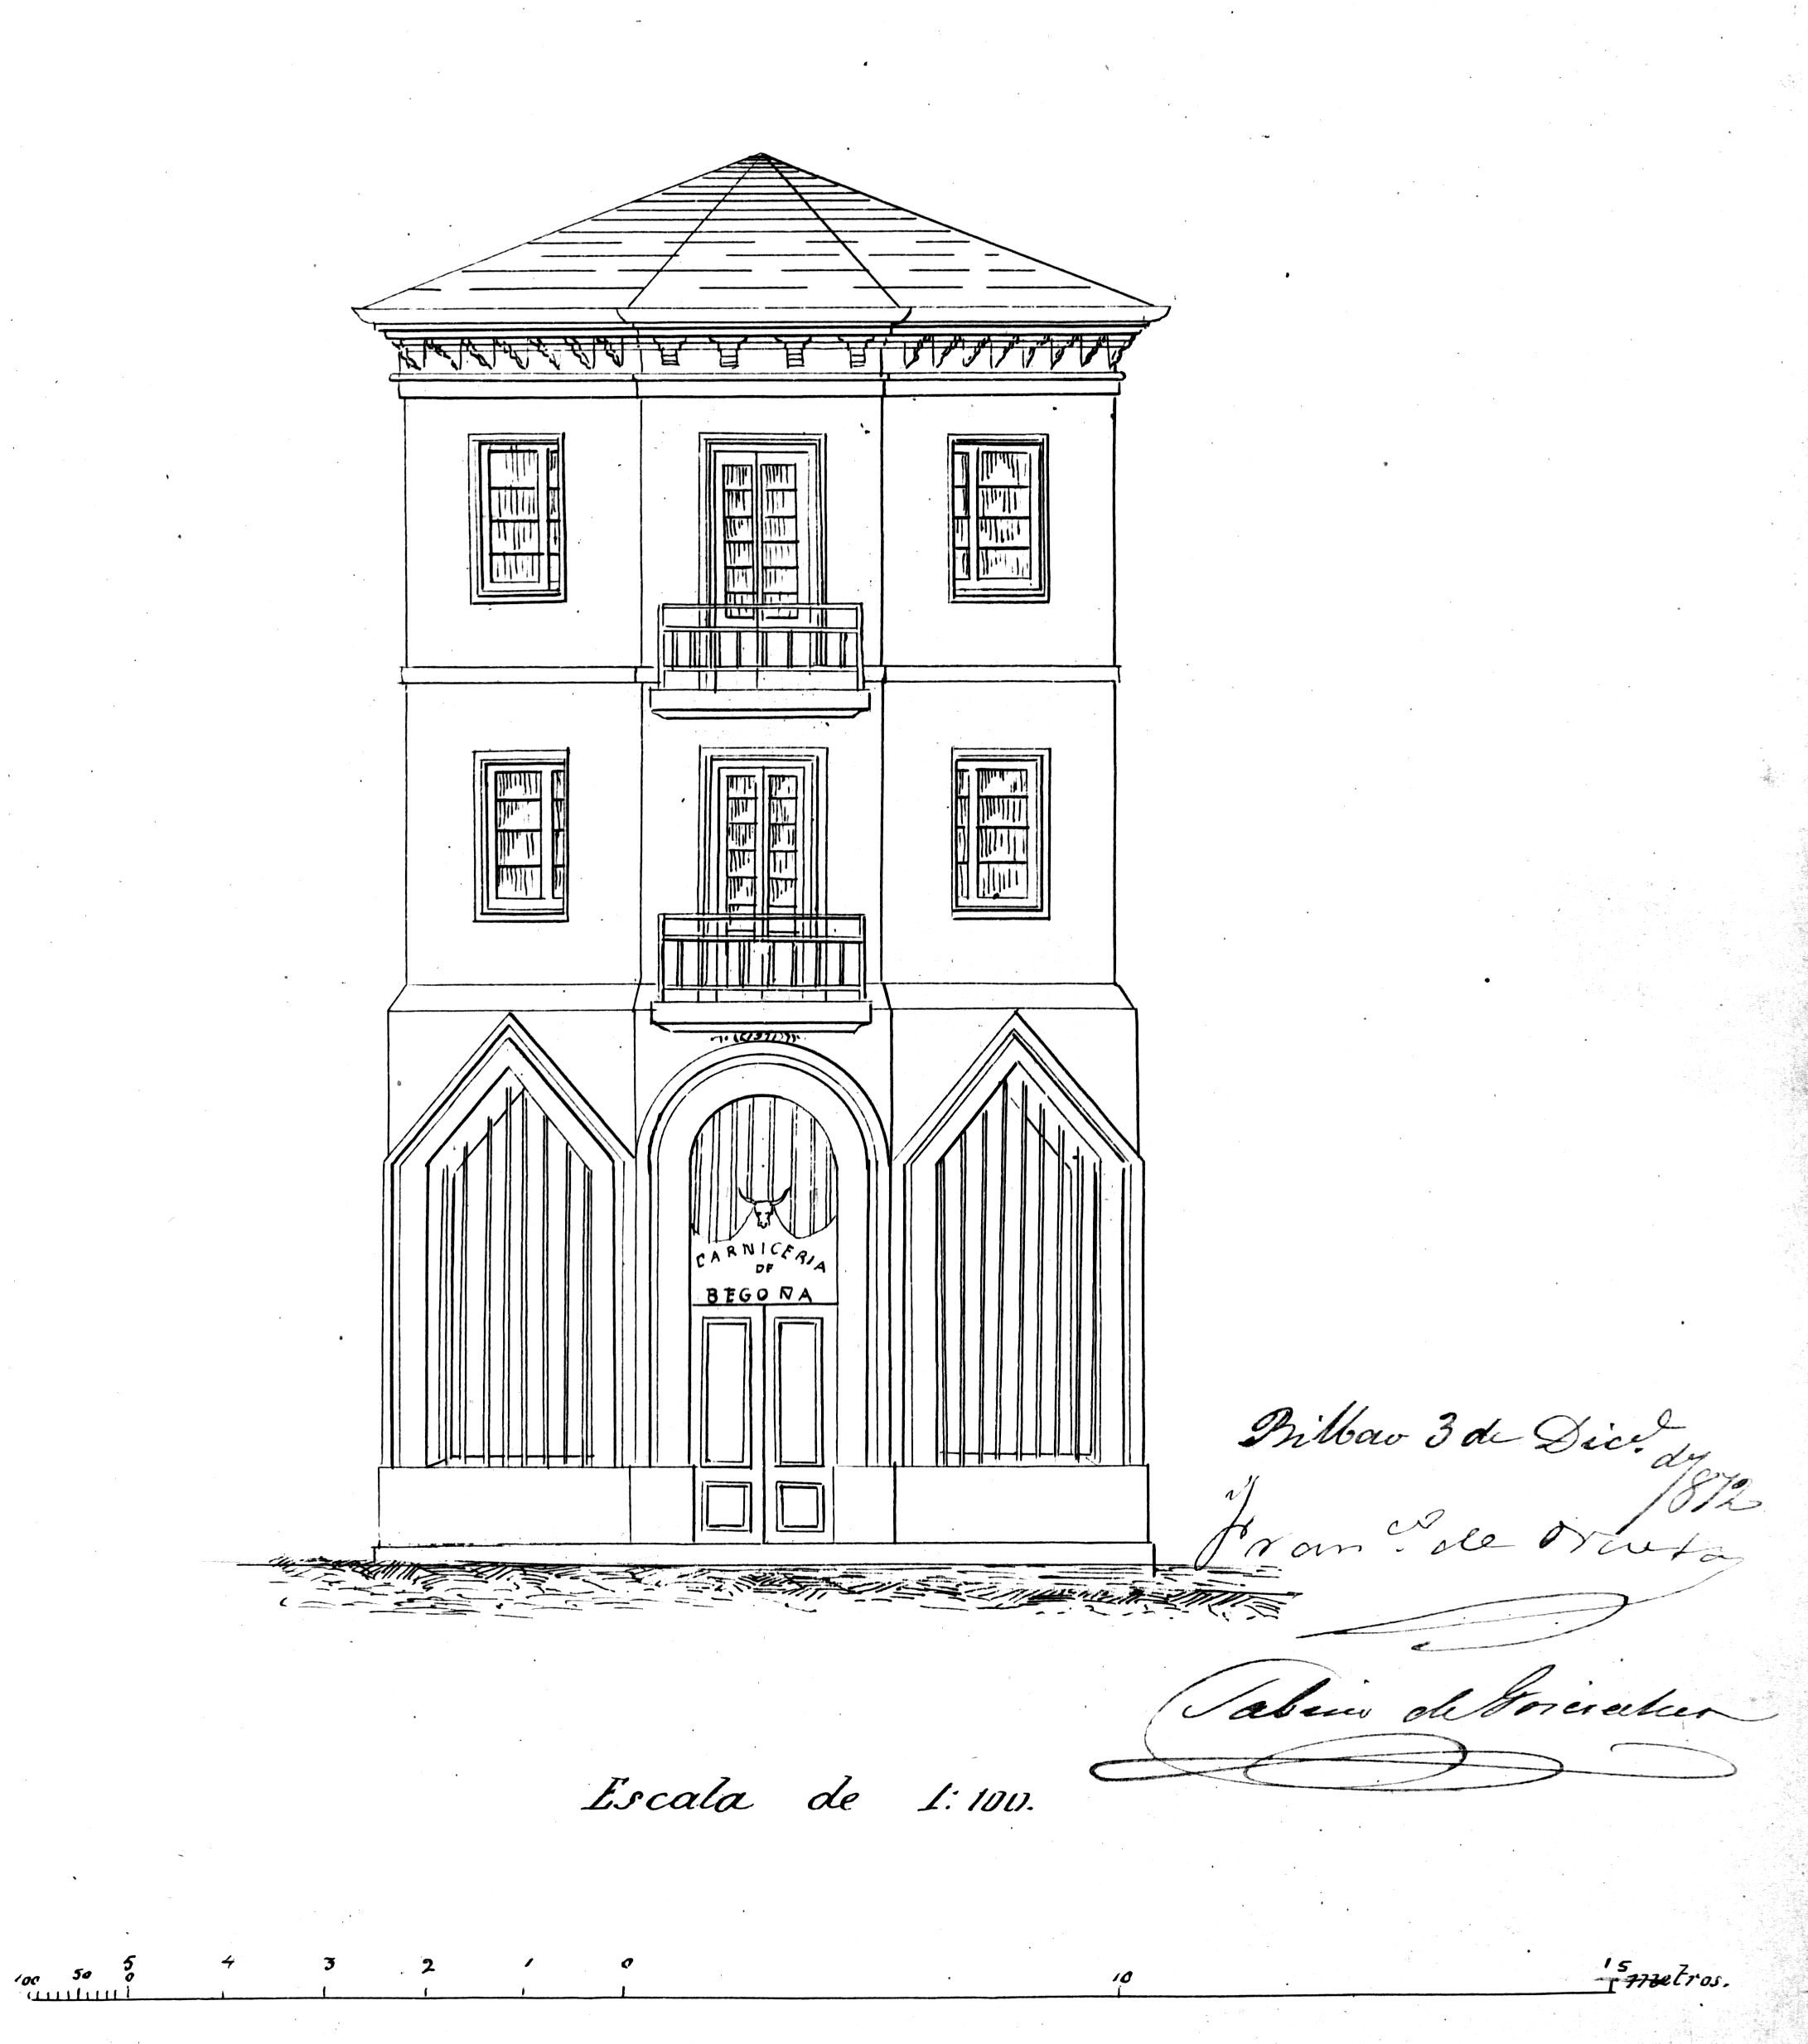 CARNICERIA
DE
BEGOÑA
Bilbao 3 de Dic.e de
1872
Fran.co de
Sabino de Goicoechea
Escala de 1:100.
100 50 5 4 3 2 1 0 10 15 metros.
0